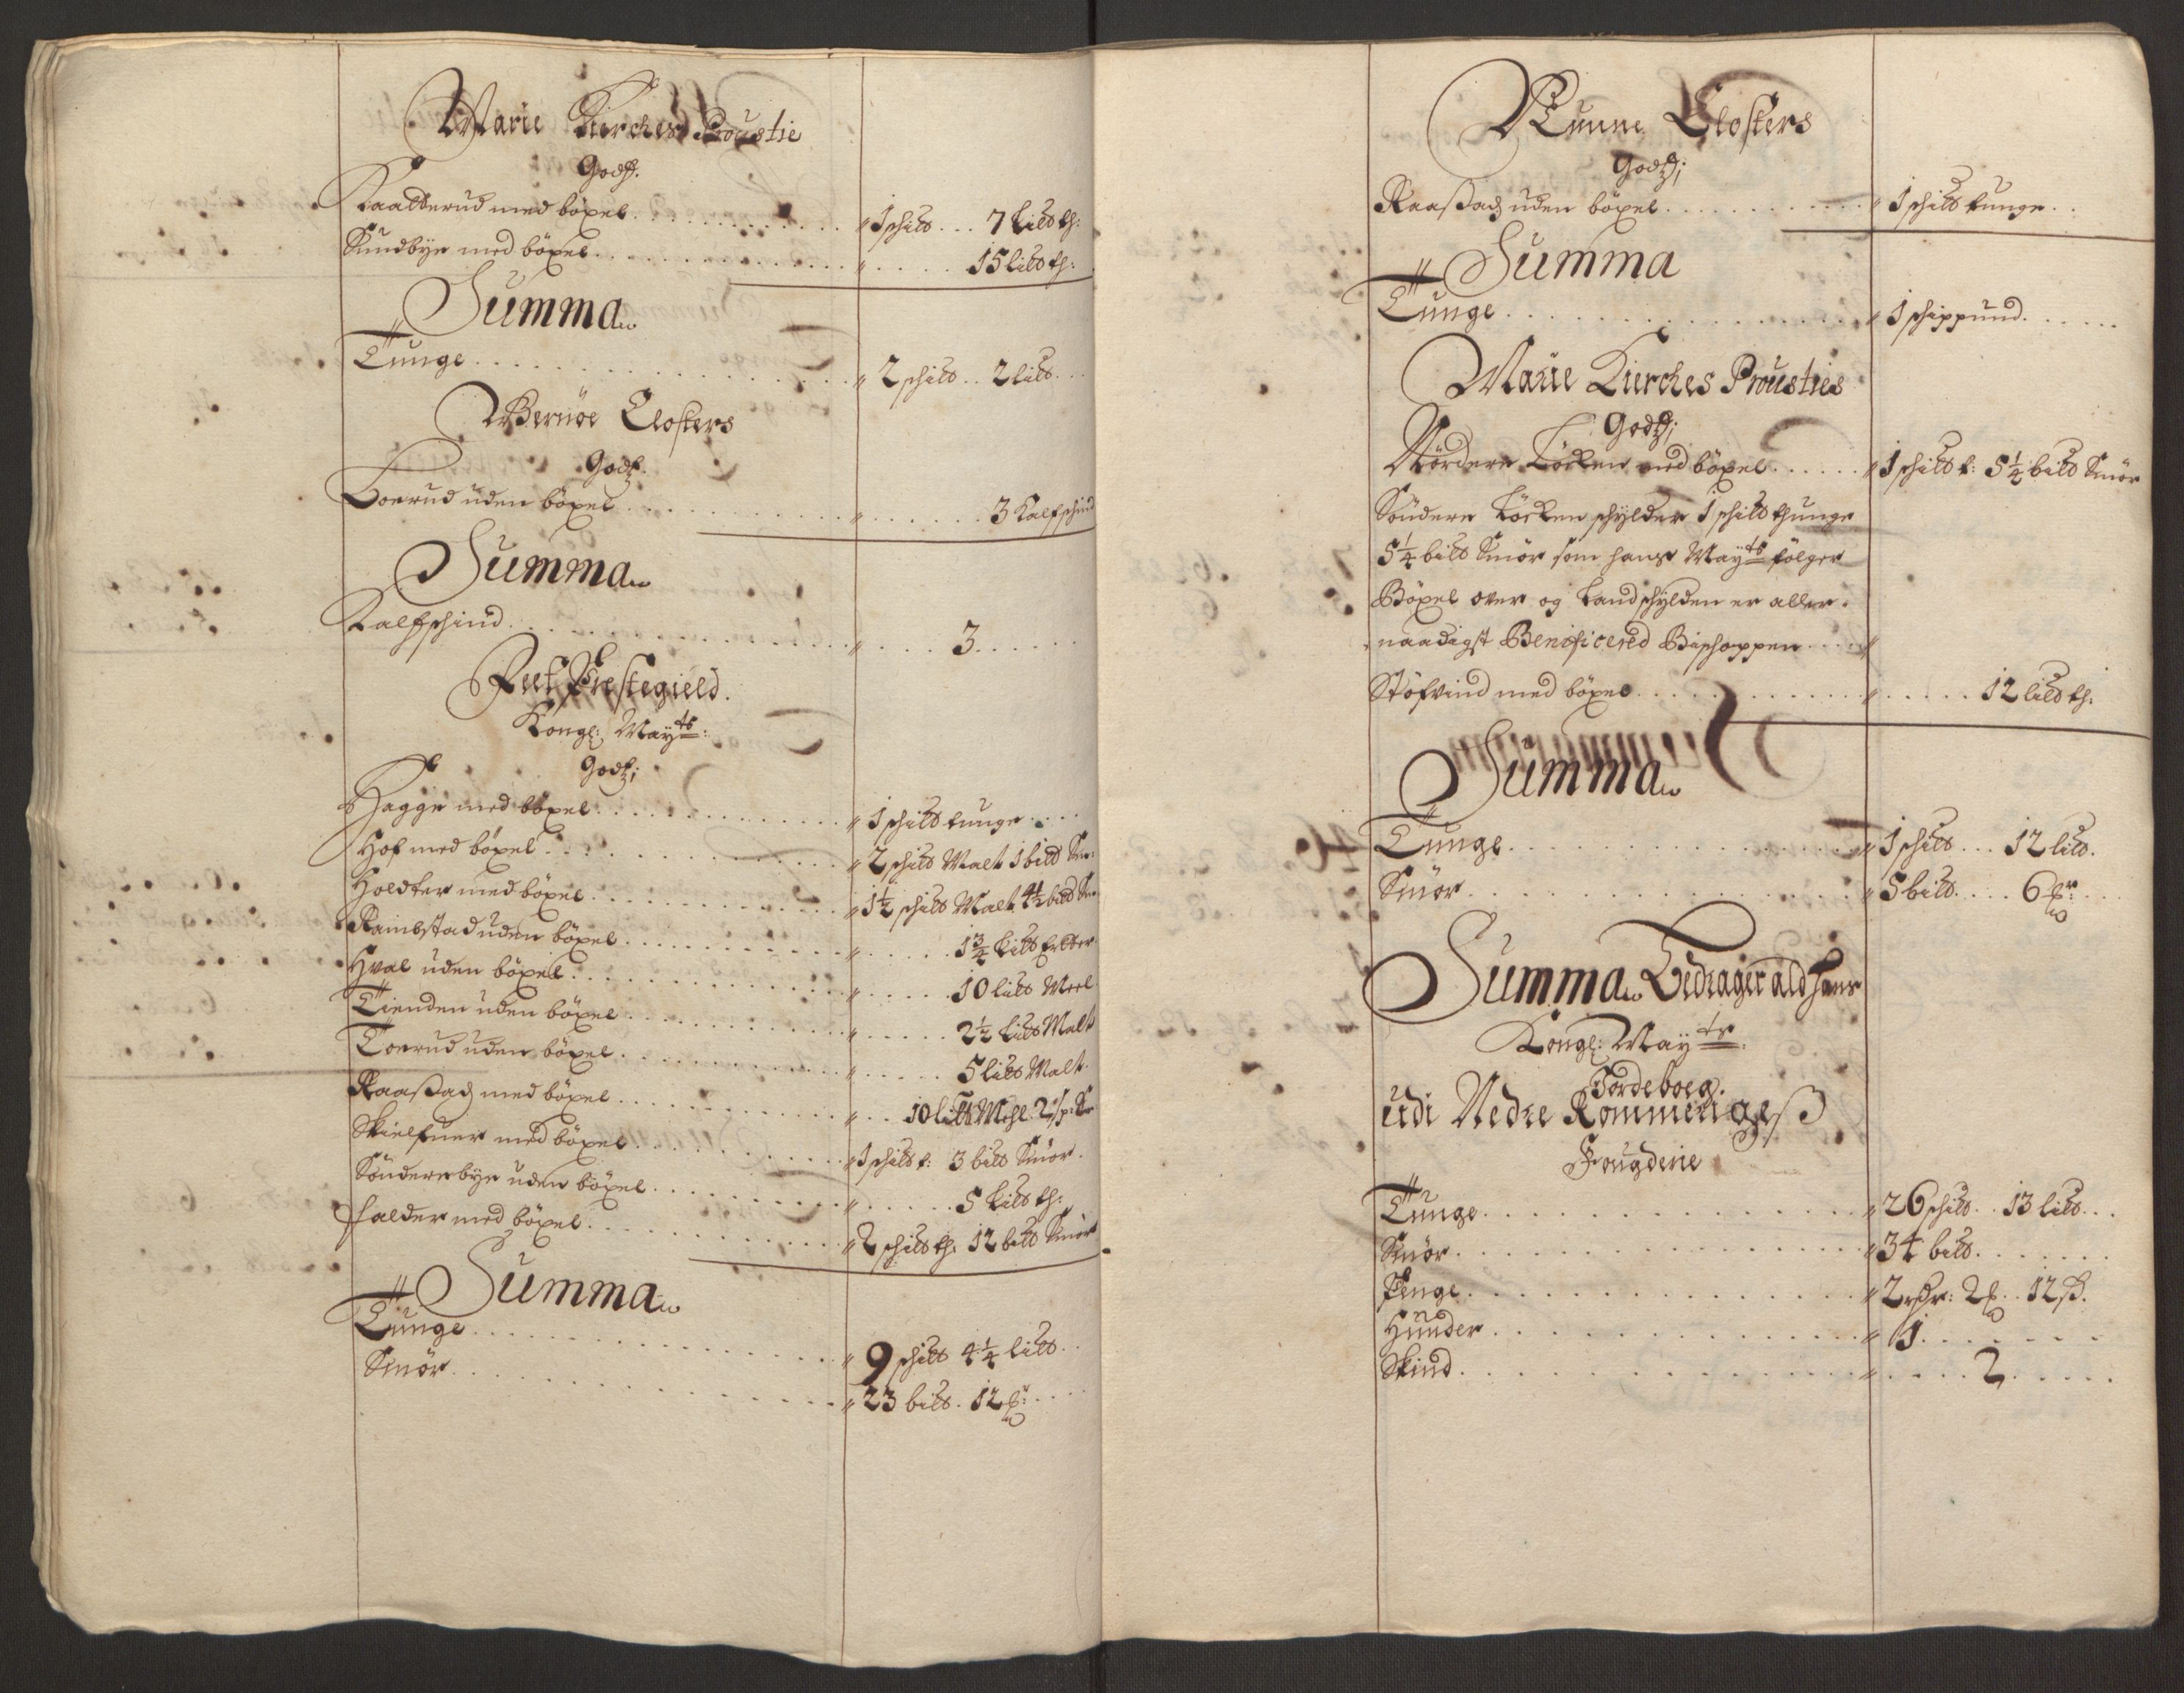 Marie Kierches Proustie
Godtz.
Kaalderud med böxel . . . " 1 schild . . . 7 Lild th:
Sundbye med böxel . . . " . . . 15 lild th:
Summa
Tunge . . . " 2 schild . . 2 lild . . .
Wernöe Closters
Godtz.
Loerud uden böxel . . . " . . . 3 Kalfschind
Summa
Kalfschind . . . " . . . 3 . . .
Prestegield.
Kongl: Mayts:
Godtz;
Hagge med böxel . . . " 1 schild tunge . . .
Hof med böxel . . . " 2 schild Malt 1 bild Sm:
Holdter med böxel . . . " 1½ schild Malt 4½ bild Sm:
Rambstad uden böxel . . . " . . . 1¾ Lild Erter
Hval uden böxel . . . " . . . 10 lild Meel
Tienden uden böxel . . . " . . . 2½ Lild Malt
Toerud uden böxel . . . " . . . 5 lild Malt.
Raaßad med böxel . . . " . . 10 lild Mehl
Skielfuer med böxel . . . " 1 schild t: 3 bild Smör.
Sönderbye uden böxel . . . " . . . 5 Lild th:
falder med böxel . . . " 2 schild th: 12 bild Smör
Summa
Tunge . . . " 9 schild 4¼ lild . .
Smör . . . " 23 bild . 12 . . .
Nunne Closters
Godtz;
Raaßad uden böxel . . . " 1 schild tunge . .
Summa
Tunge . . . " 1 schippund . . .
Marie Kierches Prousties
Godtz;
Nördere Löcken med böxel . . . " 1 schild t: 5¼ bild Smör
Söndere Löcken schylder 1 schild thunge
5¼ bild Smör som hans Mayts fölger
Böxel over og Landschylden er aller-
naadigst Benificered Bischoppen . . . "
Stöfvind med böxel . . . " . . . 12 lild th:
Summa
Tunge . . . " 1 schild . . . 12 lild.
Smör . . . " 5 bild . . . 6 . . .
Summa Bedrager ald hans
Kongl: Mayts:
Jordeboeg.
udi Nedre Rommerigeß
Fougderie
Tunge . . . " 26 schild . . 13 lild . . .
Smör . . . " 34 bild . . .
Penge . . . " 2 rdr: 2 . . 12 ß.
Huuder . . . " 1 . . .
Skind . . . " . . . 2 . . .